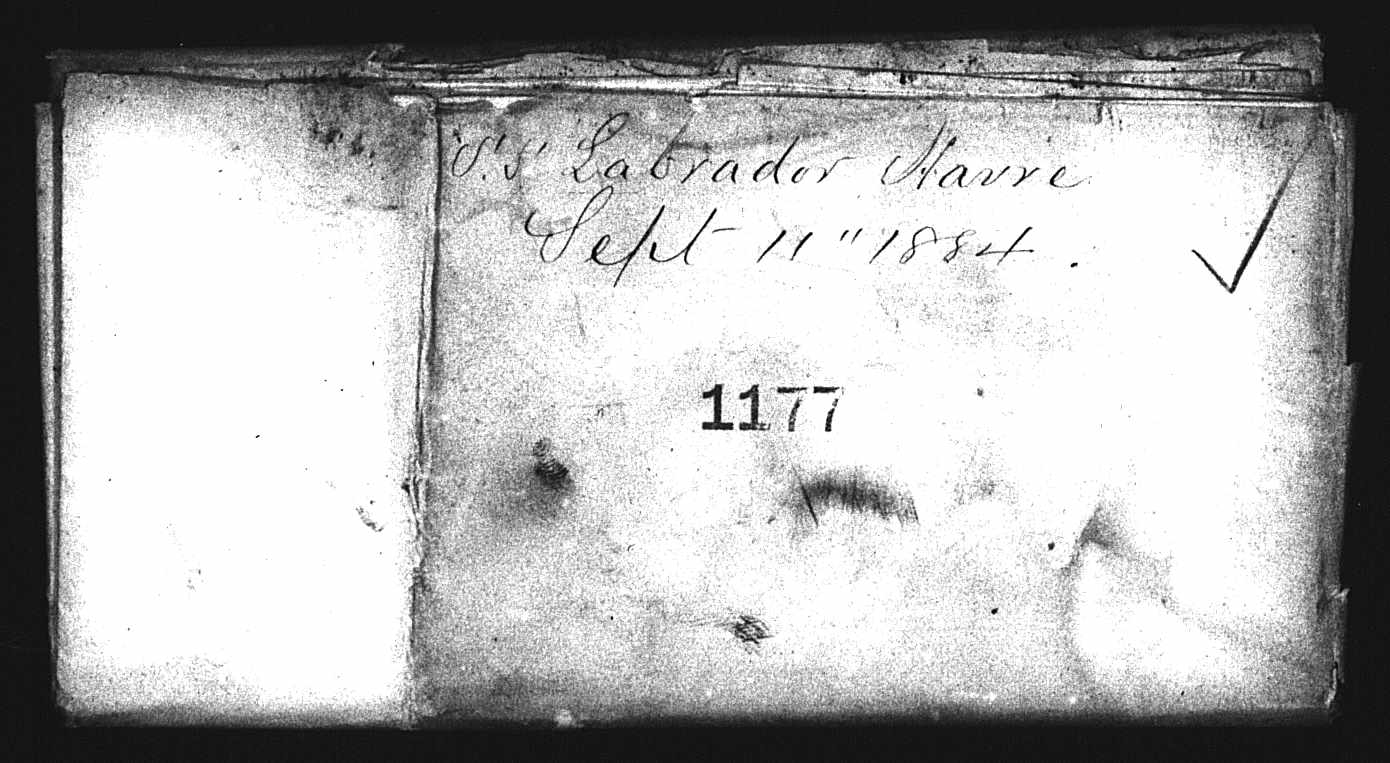 S.S Labrador Havre
Sept 11" 1884.
1177